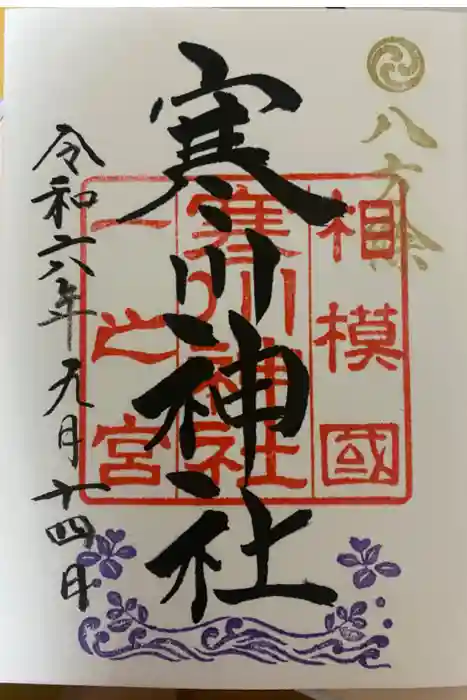 八方除
寒川神社
相模國
寒川神社
一之宮
令和六年九月十四日